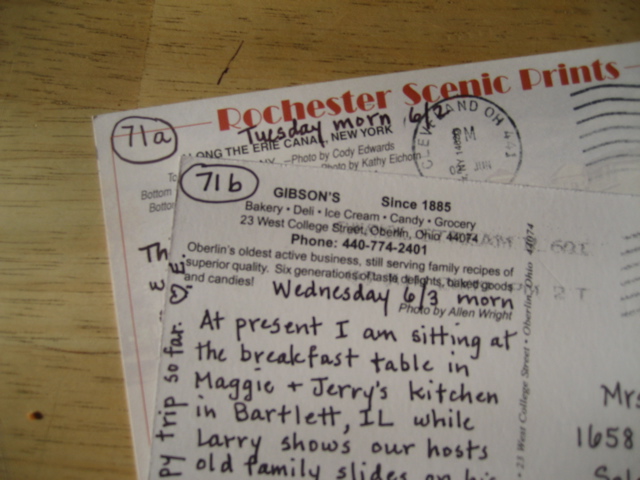 Rochester Scenic Prints
71a
Tuesday morn 6/2
ALONG THE ERIE CANAL, NEW YORK
Photo by Cody Edwards
Photo by Kathy Eichorn
To
Bottom
Botto
Th
CLEVELAND OH 441
71b
GIBSON'S Since 1885
Bakery • Deli • Ice Cream • Candy • Grocery
23 West College Street, Oberlin, Ohio 44074
Phone: 440-774-2401
Oberlin's oldest active business, still serving family recipes of
superior quality. Six generations of taste delights, baked goods
and candies!
Wednesday 6/3 morn
Photo by Allen Wright
At present I am sitting at
the breakfast table in
Maggie + Jerry's kitchen
in Bartlett, IL while
Larry shows our hosts
old family slides on his
py trip so far. ♡, E.
23 West College Street • Oberlin, Ohio 44074
Mrs
1658